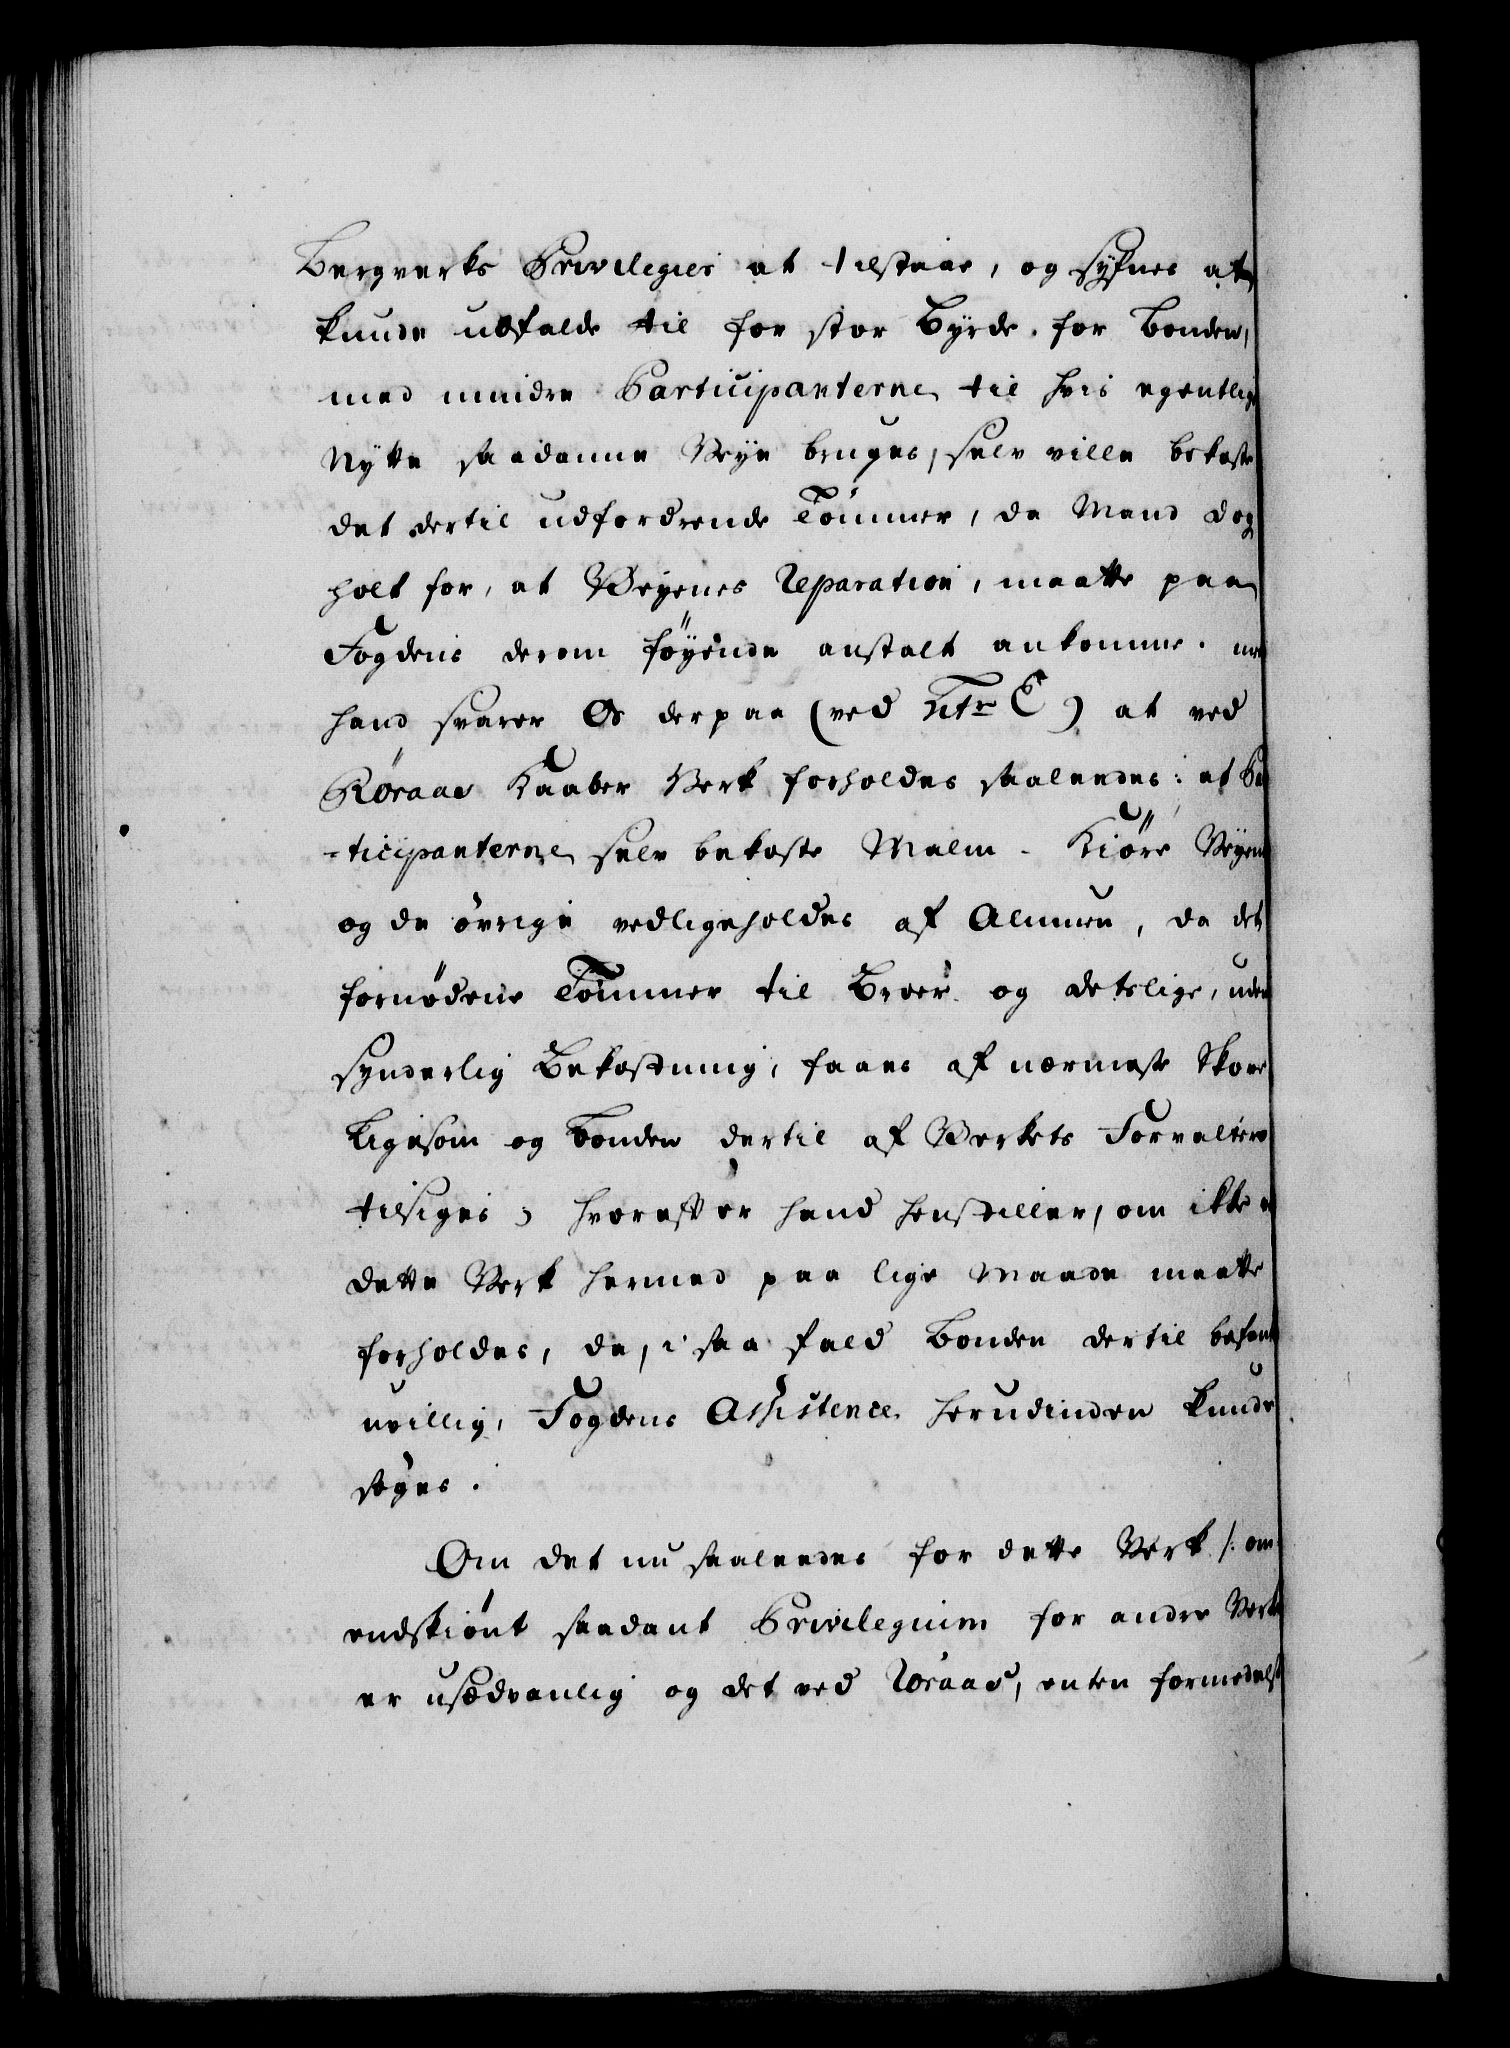 Bergverks Privilegier at tilstaae, og synes at
kunde udfalde til for stor Byrde for Bonden,
med mindre Participanterne til hvis egentlige
Nytte saadanne Veye bruges, selv ville bekoste
det dertil udfordrende Tömmer, da Mand dog
holt for, at Veyenes Reparation, maatte paa
Fogdens derom föyende anstalt ankomme. men
hand svarer Os derpaa (ved Ltr C) at ved
Röraas Kaaber Verk forholdes saaledes: at Par
-ticipanterne selv bekoste Malm-Kiöre Veyene
og de övrige vedligeholdes af Almuen, da det
fornödene Tömmer til Broer og detslige, uden
synderlig Bekostning, faaes af nærmeste Skove
ligesom og Bonden dertil af Verkets Forvaltere
tilsiges; hvorefter hand henstiller, om ikke
dette Verk hermed paa lige Maade maatte
forholdes, da, i saa Fald Bonden dertil befant
uvillig, Fogdens Assistence herudinden kunde
söges.
Om det nu saaledes for dette Verk /: om
endskiönt saadant Privilegium for andre Verke
er usædvanlig og det ved Röraas, enten formedelst